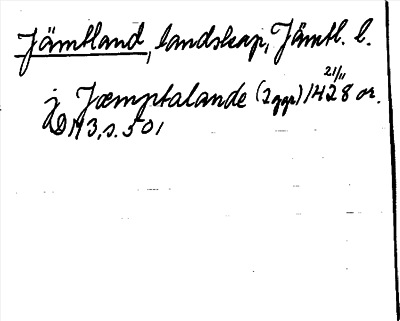 Jämtland, landskap, Jämtl. l.
j Jæmptalande (2 ggr) 21/11 1428 or.
DN 3, s. 501